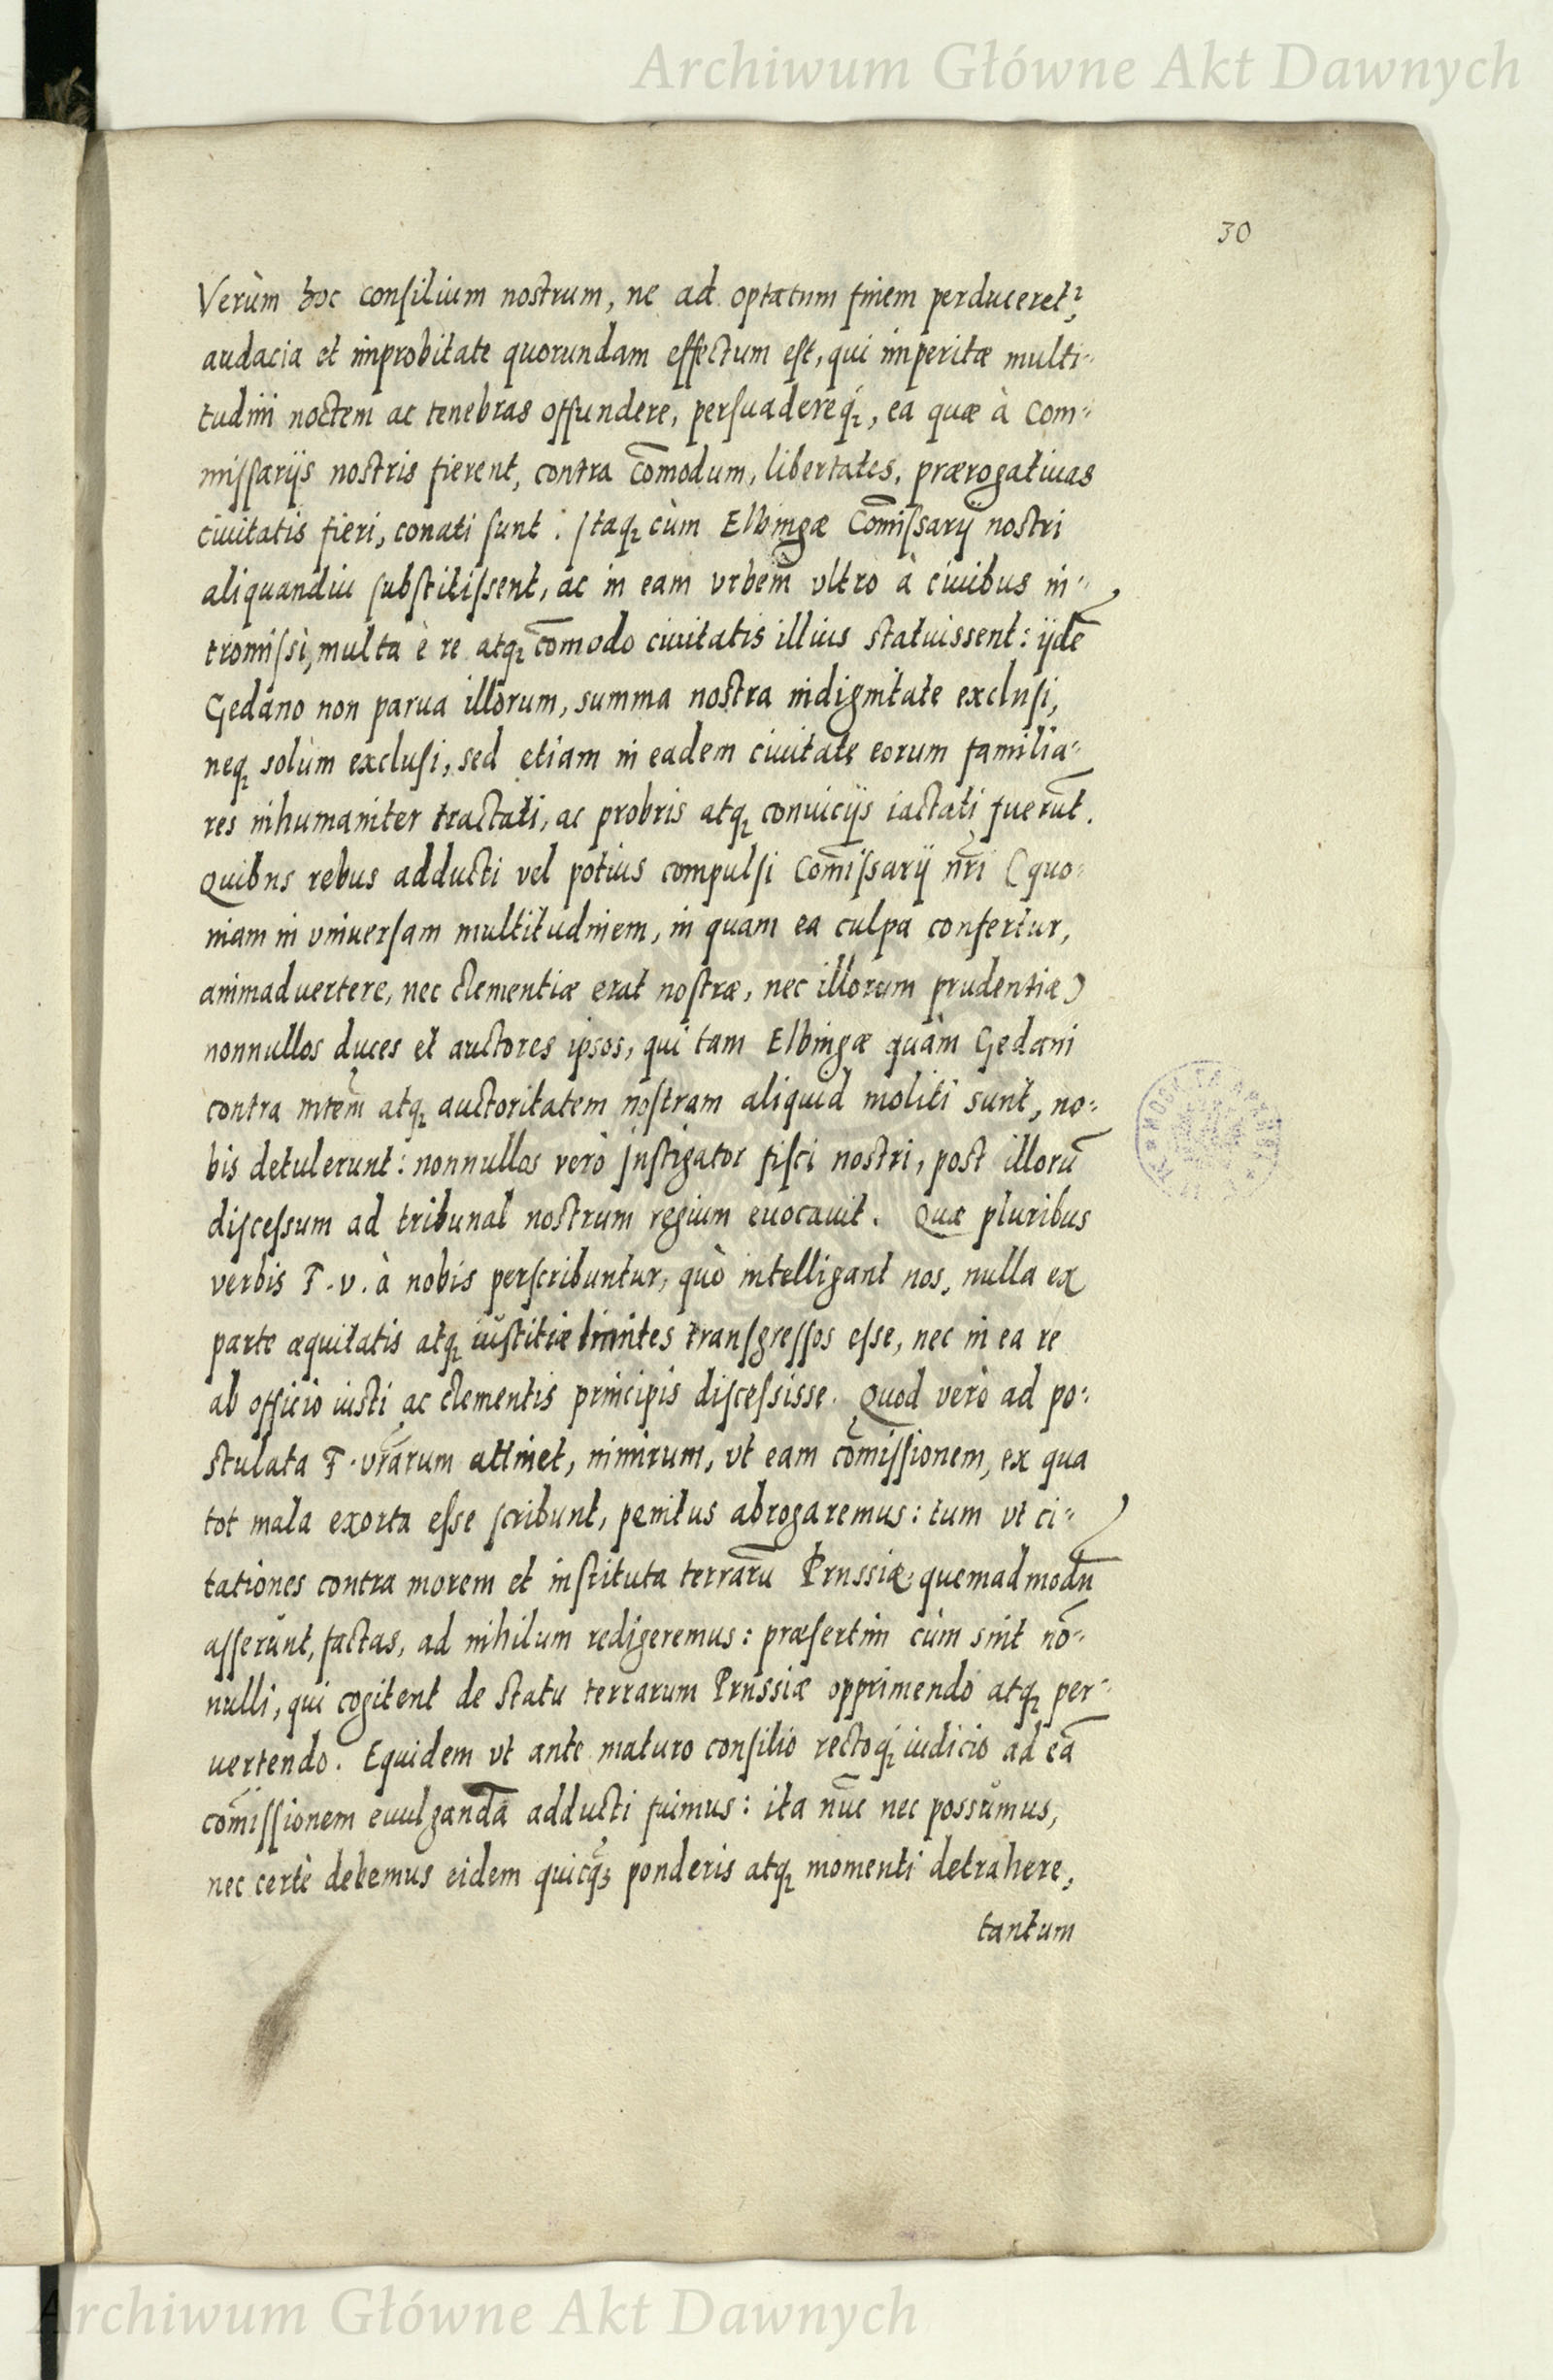 Archiwum Główne Akt Dawnych
30
Verùm hoc consilium nostrum, ne ad optatum finem perduceret²,
audacia et improbitate quorundam effectum est, qui imperitæ multi-
tudini noctem ac tenebras offundere, persuadereq́, ea quæ à Com-
missarijs nostris fierent, contra com̄odum, libertates, prærogatiuas
ciuitatis fieri, conati sunt: Itaq cùm Elbingæ Com̄issarij nostri
aliquandiu substitissent, ac in eam vrbem vltro à ciuibus in-
tromissi, multa è re atq com̄odo ciuitatis illius statuissent: ijdē
Gedano non parua illorum, summa nostra indignitate exclusi,
neq solùm exclusi, sed etiam in eadem ciuitate eorum familia-
res inhumaniter tractati, ac probris atq conuicijs iactati fuerūt.
Quibus rebus adducti vel potius compulsi Com̄issarij nr̄i (quo-
niam in vniuersam multitudinem, in quam ea culpa confertur,
animaduertere, nec clementiæ erat nostræ, nec illorum prudentiæ)
nonnullos duces et auctores ipsos, qui tam Elbingæ quàm Gedani
contra mtēm atq auctoritatem nostram aliquid moliti sunt, no-
bis detulerunt: nonnullos verò Instigator fisci nostri, post illorū
discessum ad tribunal nostrum regium euocauit. Quæ pluribus
verbis F. v. à nobis perscribuntur, quò intelligant nos, nulla ex
parte æquitatis atq iustitiæ limites transgressos esse, nec in ea re
ab officio iusti ac clementis principis discessisse. Quod verò ad po-
stulata F. vrārum attinet, nimirum, vt eam cōmissionem, ex qua
tot mala exorta esse scribunt, penitus abrogaremus: tum vt ci-
tationes contra morem et instituta terrarū Prussiæ, quemadmodū
asserunt, factas, ad nihilum redigeremus: præsertim cùm sint nō-
nulli, qui cogitent de statu terrarum Prussiæ opprimendo atq per-
uertendo. Equidem vt ante maturo consilio rectoq́ iudicio ad eā
cōmissionem euulgandā adducti fuimus: ita nūc nec possumus,
nec certè debemus eidem quicq̃ ponderis atq momenti detrahere,
tantum
Archiwum Główne Akt Dawnych